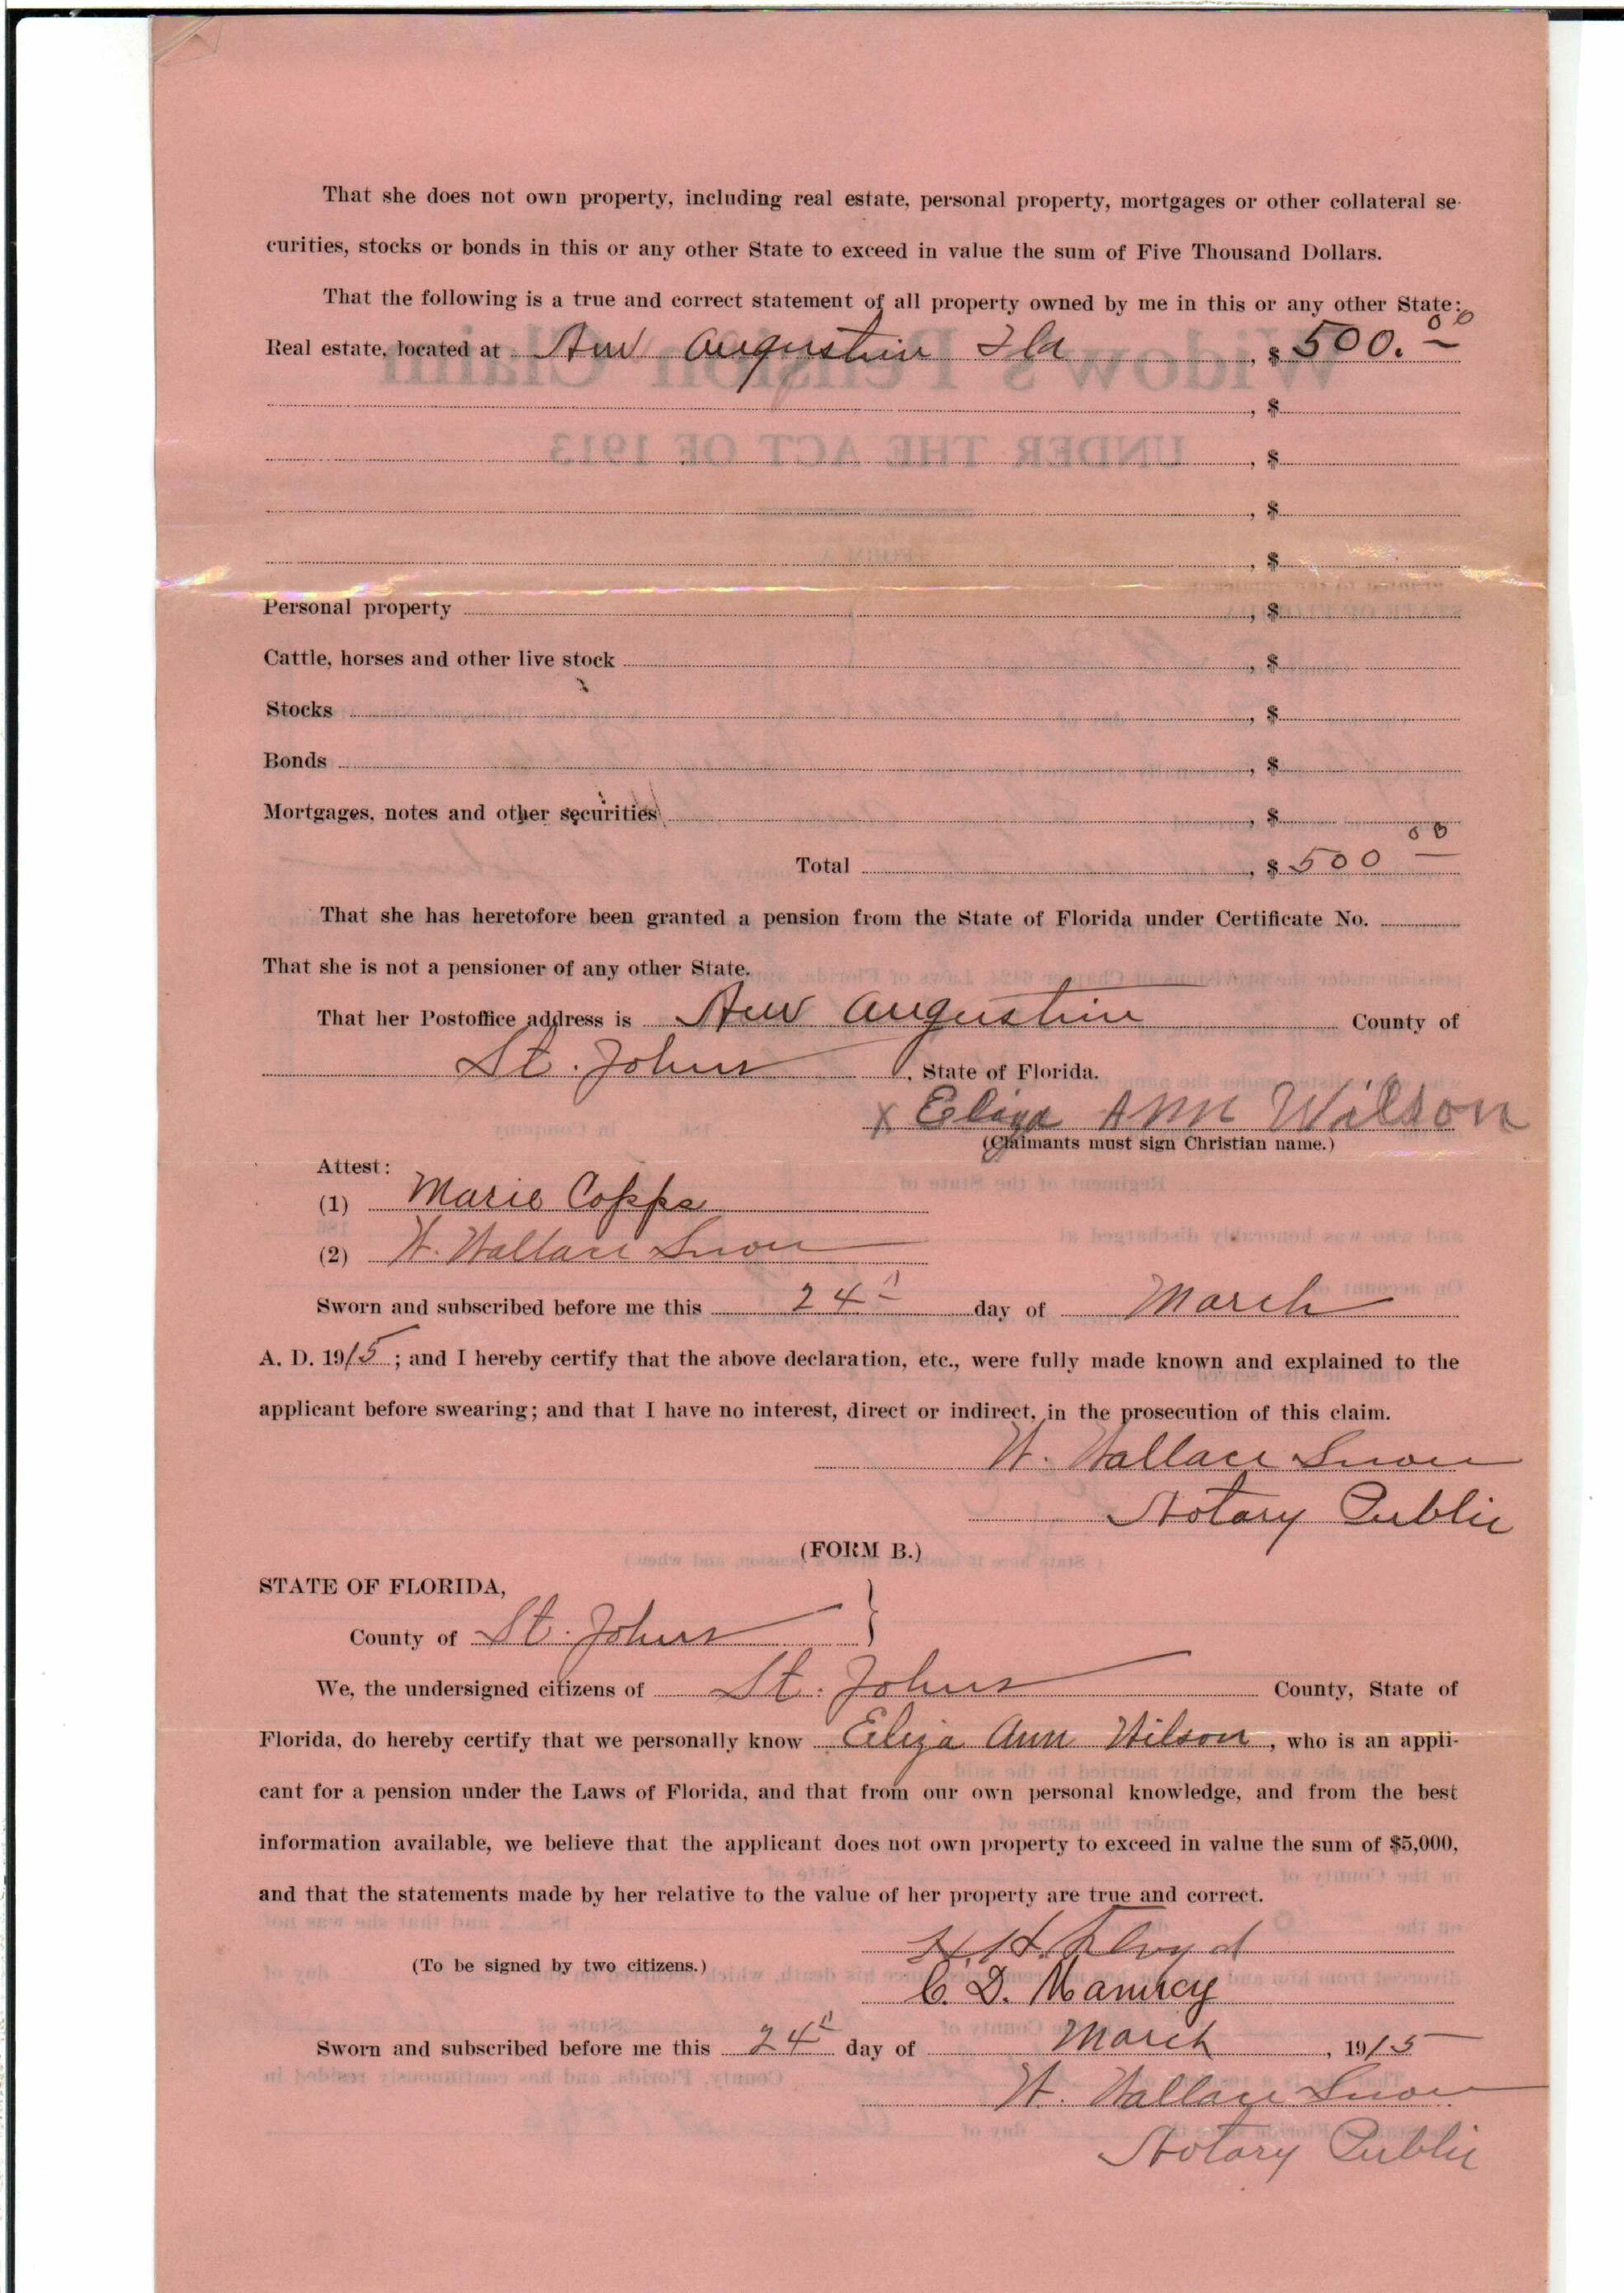 That she does not own property, including real estate, personal property, mortgages or other collateral se-
curities, stocks or bonds in this or any other State to exceed in value the sum of Five Thousand Dollars.
That the following is a true and correct statement of all property owned by me in this or any other State:
Real estate, located at New Augustine Fla , $ 500.00
, $
, $
, $
, $
Personal property , $
Cattle, horses and other live stock , $
Stocks , $
Bonds , $
Mortgages, notes and other securities , $
Total , $ 500 00
That she has heretofore been granted a pension from the State of Florida under Certificate No.
That she is not a pensioner of any other State.
That her Postoffice address is New Augustine County of
St. Johns , State of Florida.
x Eliza Ann Wilson
(Claimants must sign Christian name.)
Attest:
(1) Marie Copps
(2) W. Wallace Snow
Sworn and subscribed before me this 24th day of March
A. D. 1915 ; and I hereby certify that the above declaration, etc., were fully made known and explained to the
applicant before swearing; and that I have no interest, direct or indirect, in the prosecution of this claim.
W. Wallace Snow
Notary Public
(FORM B.)
STATE OF FLORIDA,
County of St. Johns }
We, the undersigned citizens of St. Johns County, State of
Florida, do hereby certify that we personally know Eliza Ann Wilson , who is an appli-
cant for a pension under the Laws of Florida, and that from our own personal knowledge, and from the best
information available, we believe that the applicant does not own property to exceed in value the sum of $5,000,
and that the statements made by her relative to the value of her property are true and correct.
Floyd
(To be signed by two citizens.)
C. D.
Sworn and subscribed before me this 24th day of March , 1915
W. Wallace Snow
Notary Public
Widow's Pension Claim
UNDER THE ACT OF 1913